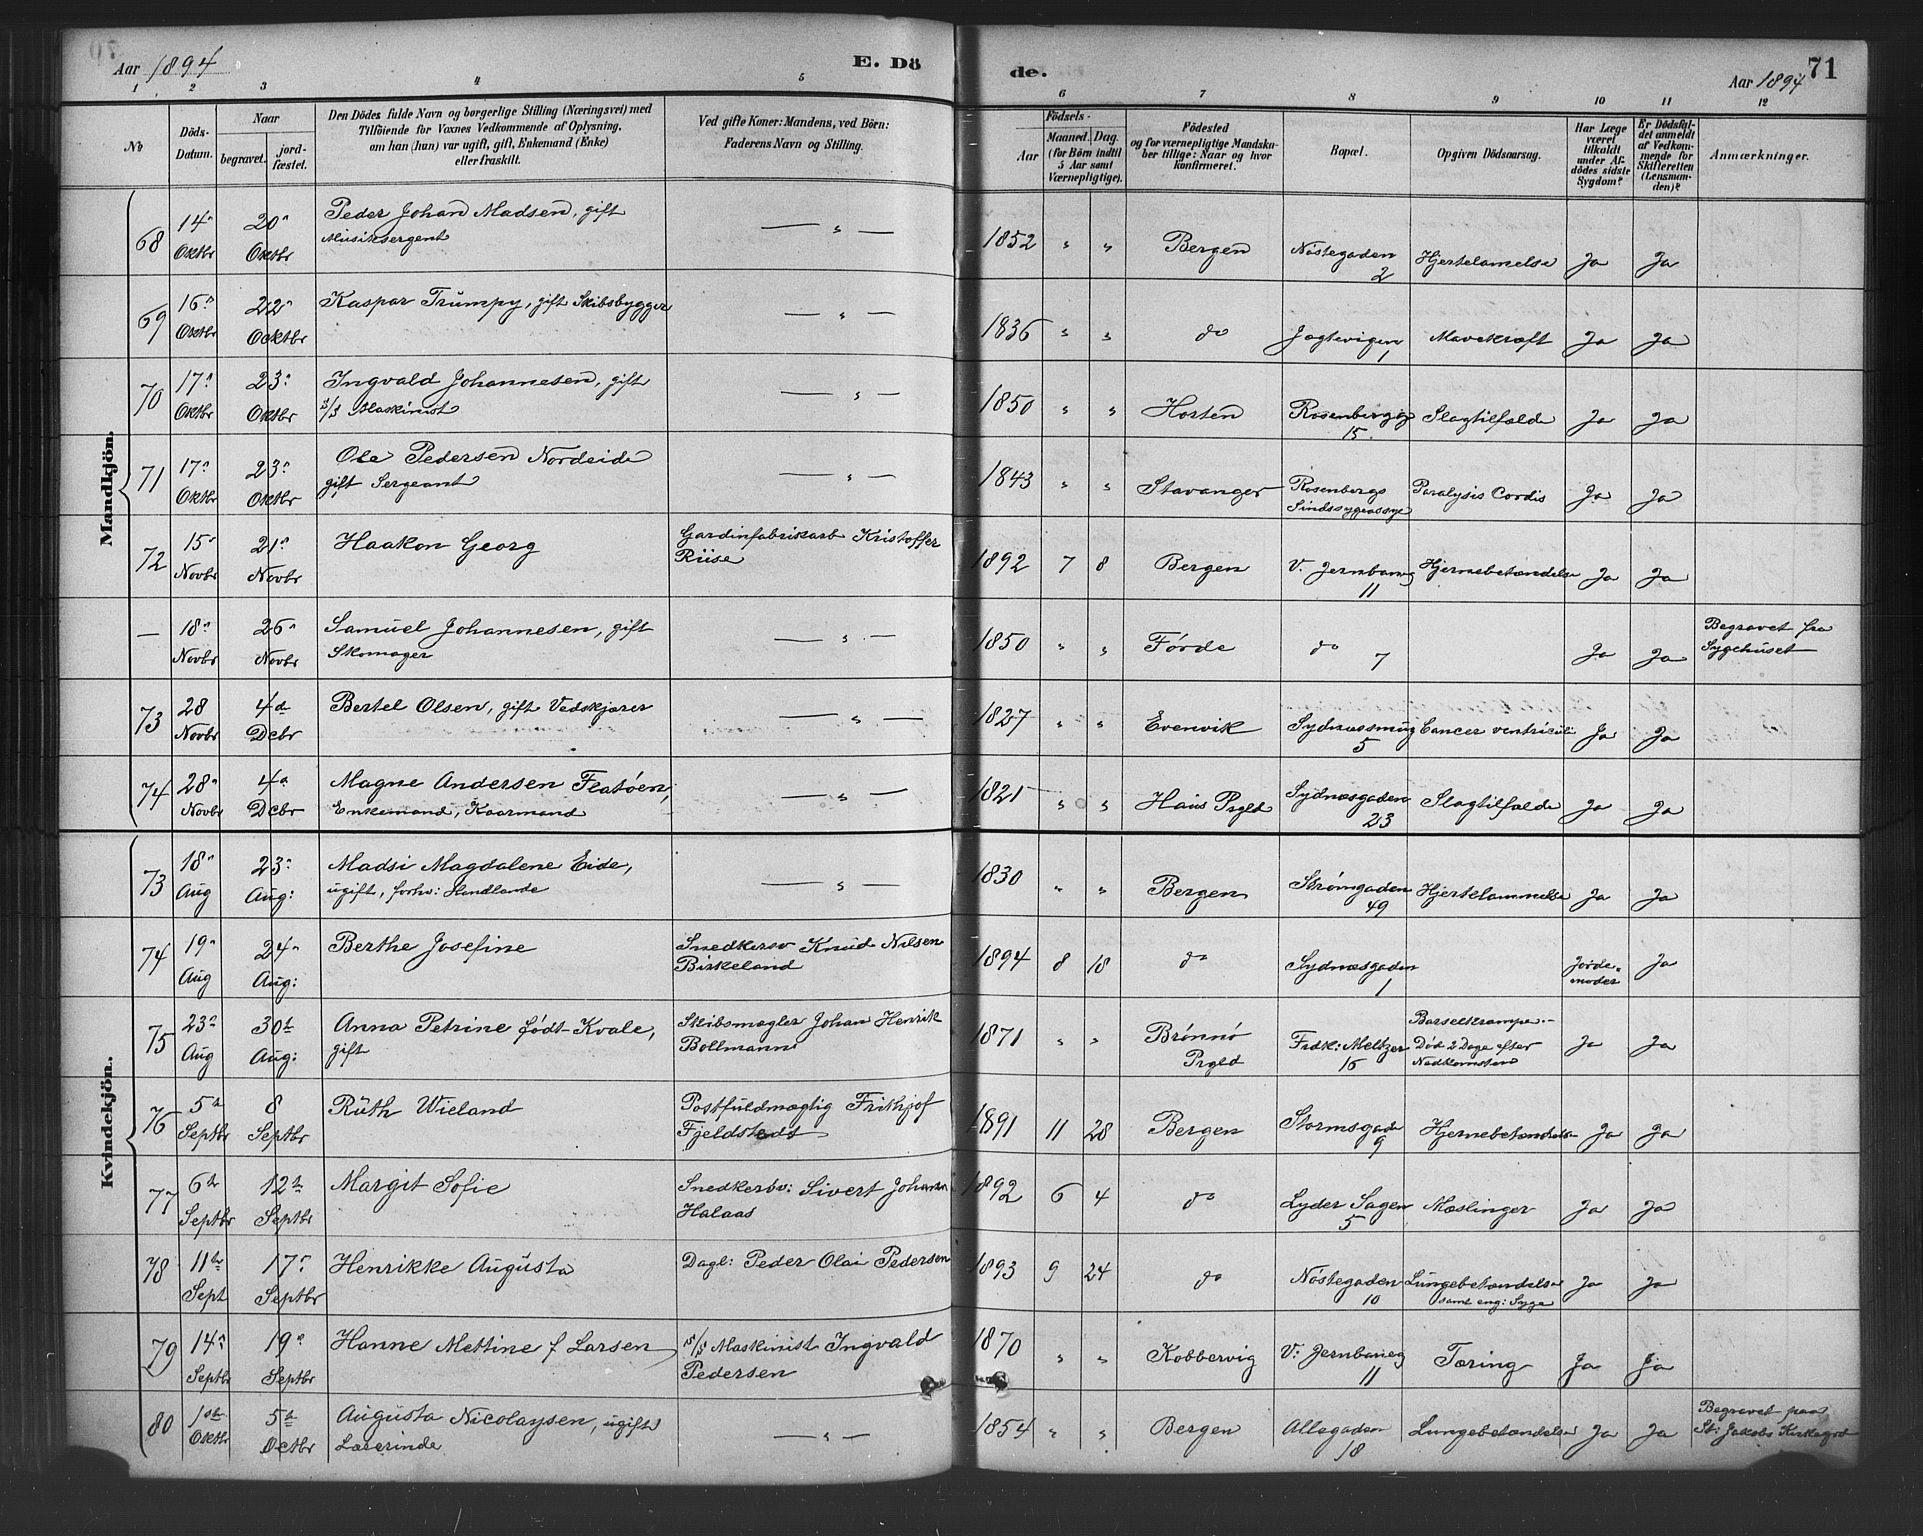 Aar 1894 E. Dö
de. Aar 1894 71
1 2 3 4 5 6 7 8 9 10 11 12
No
Döds-Datum.
Naar
begravet.
jordfæstet.
Den Dödes fulde Navn og borgerlige Stilling (Næringsvei) med
Tilföiende for Voxnes Vedkommende af Oplysning,
om han (hun) var ugift, gift, Enkemand (Enke)
eller fraskilt.
Ved gifte Koner: Mandens, ved Börn:
Faderens Navn og Stilling.
Födsels-
Aar
Maaned. Dag.
(for Börn indtil
5 Aar samt
Værnepligtige).
Födested
og for værnepligtige Mandska-
ber tillige: Naar og hvor
konfirmeret.
Bopæl.
Opgiven Dödsaarsag.
Har Læge
været
tilkaldt
under Af-
dödes sidste
Sygdom?
Er Dödsfal-
det anmeldt
af Vedkom-
mende for
Skifteretten
(Lensman-
den)?
Anmærkninger.
Mandkjön.
68 14' Oktbr 20' Oktbr Peder Johan Madsen, gift Musiksergent — " — 1852 " " Bergen Nöstegaden 2 Hjertelamelse Ja Ja
69 16' Oktbr 22' Ocktbr Kaspar Trumpy, gift Skibsbygger — " — 1836 " " do Jægtevigen 1 Mavekræft Ja Ja
70 17' Oktbr 23' Oktbr Ingvald Johannesen, gift S/S Maskinist — " — 1850 " " Horten Rosenbergg 15. Slagtilfælde Ja Ja
71 17' Oktbr 23' Oktbr Ole Pedersen Nordeide gift Sergeant — " — 1843 " " Stavanger Rosenbergs Sindssygeassye Paralysis Cordis Ja Ja
72 15' Novbr 21' Novbr Haakon Georg Gardinfabrikarb Kristoffer Riise 1892 7 8 Bergen V. Jernbaneg 11 Hjernebetændelse Ja Ja
— 18' Novbr 26' Novbr Samuel Johannesen, gift Skomager — " — 1850 " " Förde do 7 Ja Ja Begravet fra Sygehuset
73 28 Novbr 4de Dcbr Bertel Olsen, gift Vedskjærer — " — 1827 " " Evenvik Sydnæssmug 5 Cancer ventriculi Ja Ja
74 28' Novbr 4de Dcbr Magne Andersen Flatøen, Enkemand, Kaarmand — " — 1821 " " Haus Prgld Sydnæsgaden 23 Slagtilfælde Ja Ja
Kvindekjön.
73 18' Aug 23' Aug: Madsi Magdalene Eide, ugift, forhv: Handlande — " — 1830 " " Bergen Strömgaden 49 Hjertelammelse Ja Ja
74 19' Aug 24' Aug: Berthe Josefine Snedkersv Knud Nilsen Birkeland 1894 8 18 do Sydnæsgaden 1 Jordemoder Ja
75 23' Aug 30te Aug: Anna Petrine født Kvale, gift Skibsmægler Johan Henrik Bollmann 1871 " " Brønnø Prgld Frdk: Meltzer 16 Barselkrampe. Död 2 Dage efter Nedkomsten Ja Ja
76 5te Septbr 8 Septbr Ruth Wieland Postfuldmægtig Frithjof Fjeldstedt 1891 11 28 Bergen Stormsgade 9 Hjernebetændelse Ja Ja
77 6te Septbr 12te Septbr Margit Sofie Snedkersv: Sivert Johan Halaas 1892 6 4 do Lyder Sagen 5 Mæslinger Ja Ja
78 11te Sept 17' Septbr Henrikke Augusta Dagl: Peder Olai Pedersen 1893 9 24 do Nöstegaden 10 Lungebetændelse samt eng: Syge Ja Ja
79 14' Septbr 19' Septbr Hanne Mettine f Larsen S/S Maskinist Ingvald Pedersen 1870 " " Kobbervig V: Jernbaneg 11 Tæring Ja Ja
80 1ste Oktbr 5te Octbr Augusta Nicolaysen, ugift Lærerinde — " — 1854 " " Bergen Allegaden 18 Lungebetændelse Ja Ja Begravet paa St: Jakobs Kirkegrd